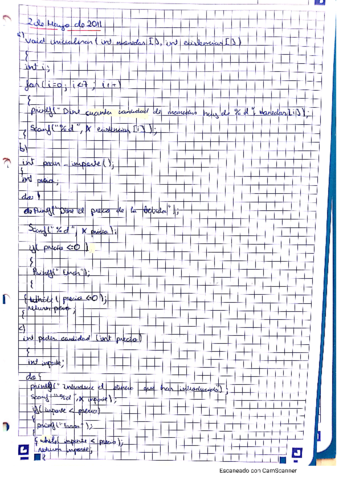 2 de Mayo de 2011
a) void inicializar (int monedas[], int existencias[])
{
int i;
for (i=0; i<7; i++)
{
printf("Dime cuanta cantidad de monedas hay de %d", monedas[i]);
Scanf("%d", & existencias[i]);
b)
int pedir_importe();
{
int precio;
do {
printf("Dime el precio de la bebida");
Scanf("%d", & precio);
if( precio <=0)
{
Printf("Error");
{
{ while ( precio <=0);
return precio;
{
c)
int pedir cantidad (int precio)
{
int importe;
do {
printf(" Introduce el dinero que has introducido)
Scanf("%d", & importe);
if (importe < precio)
{ printf("Error");
{ while importe < precio);
return importe;
{
Escaneado con CamScanner